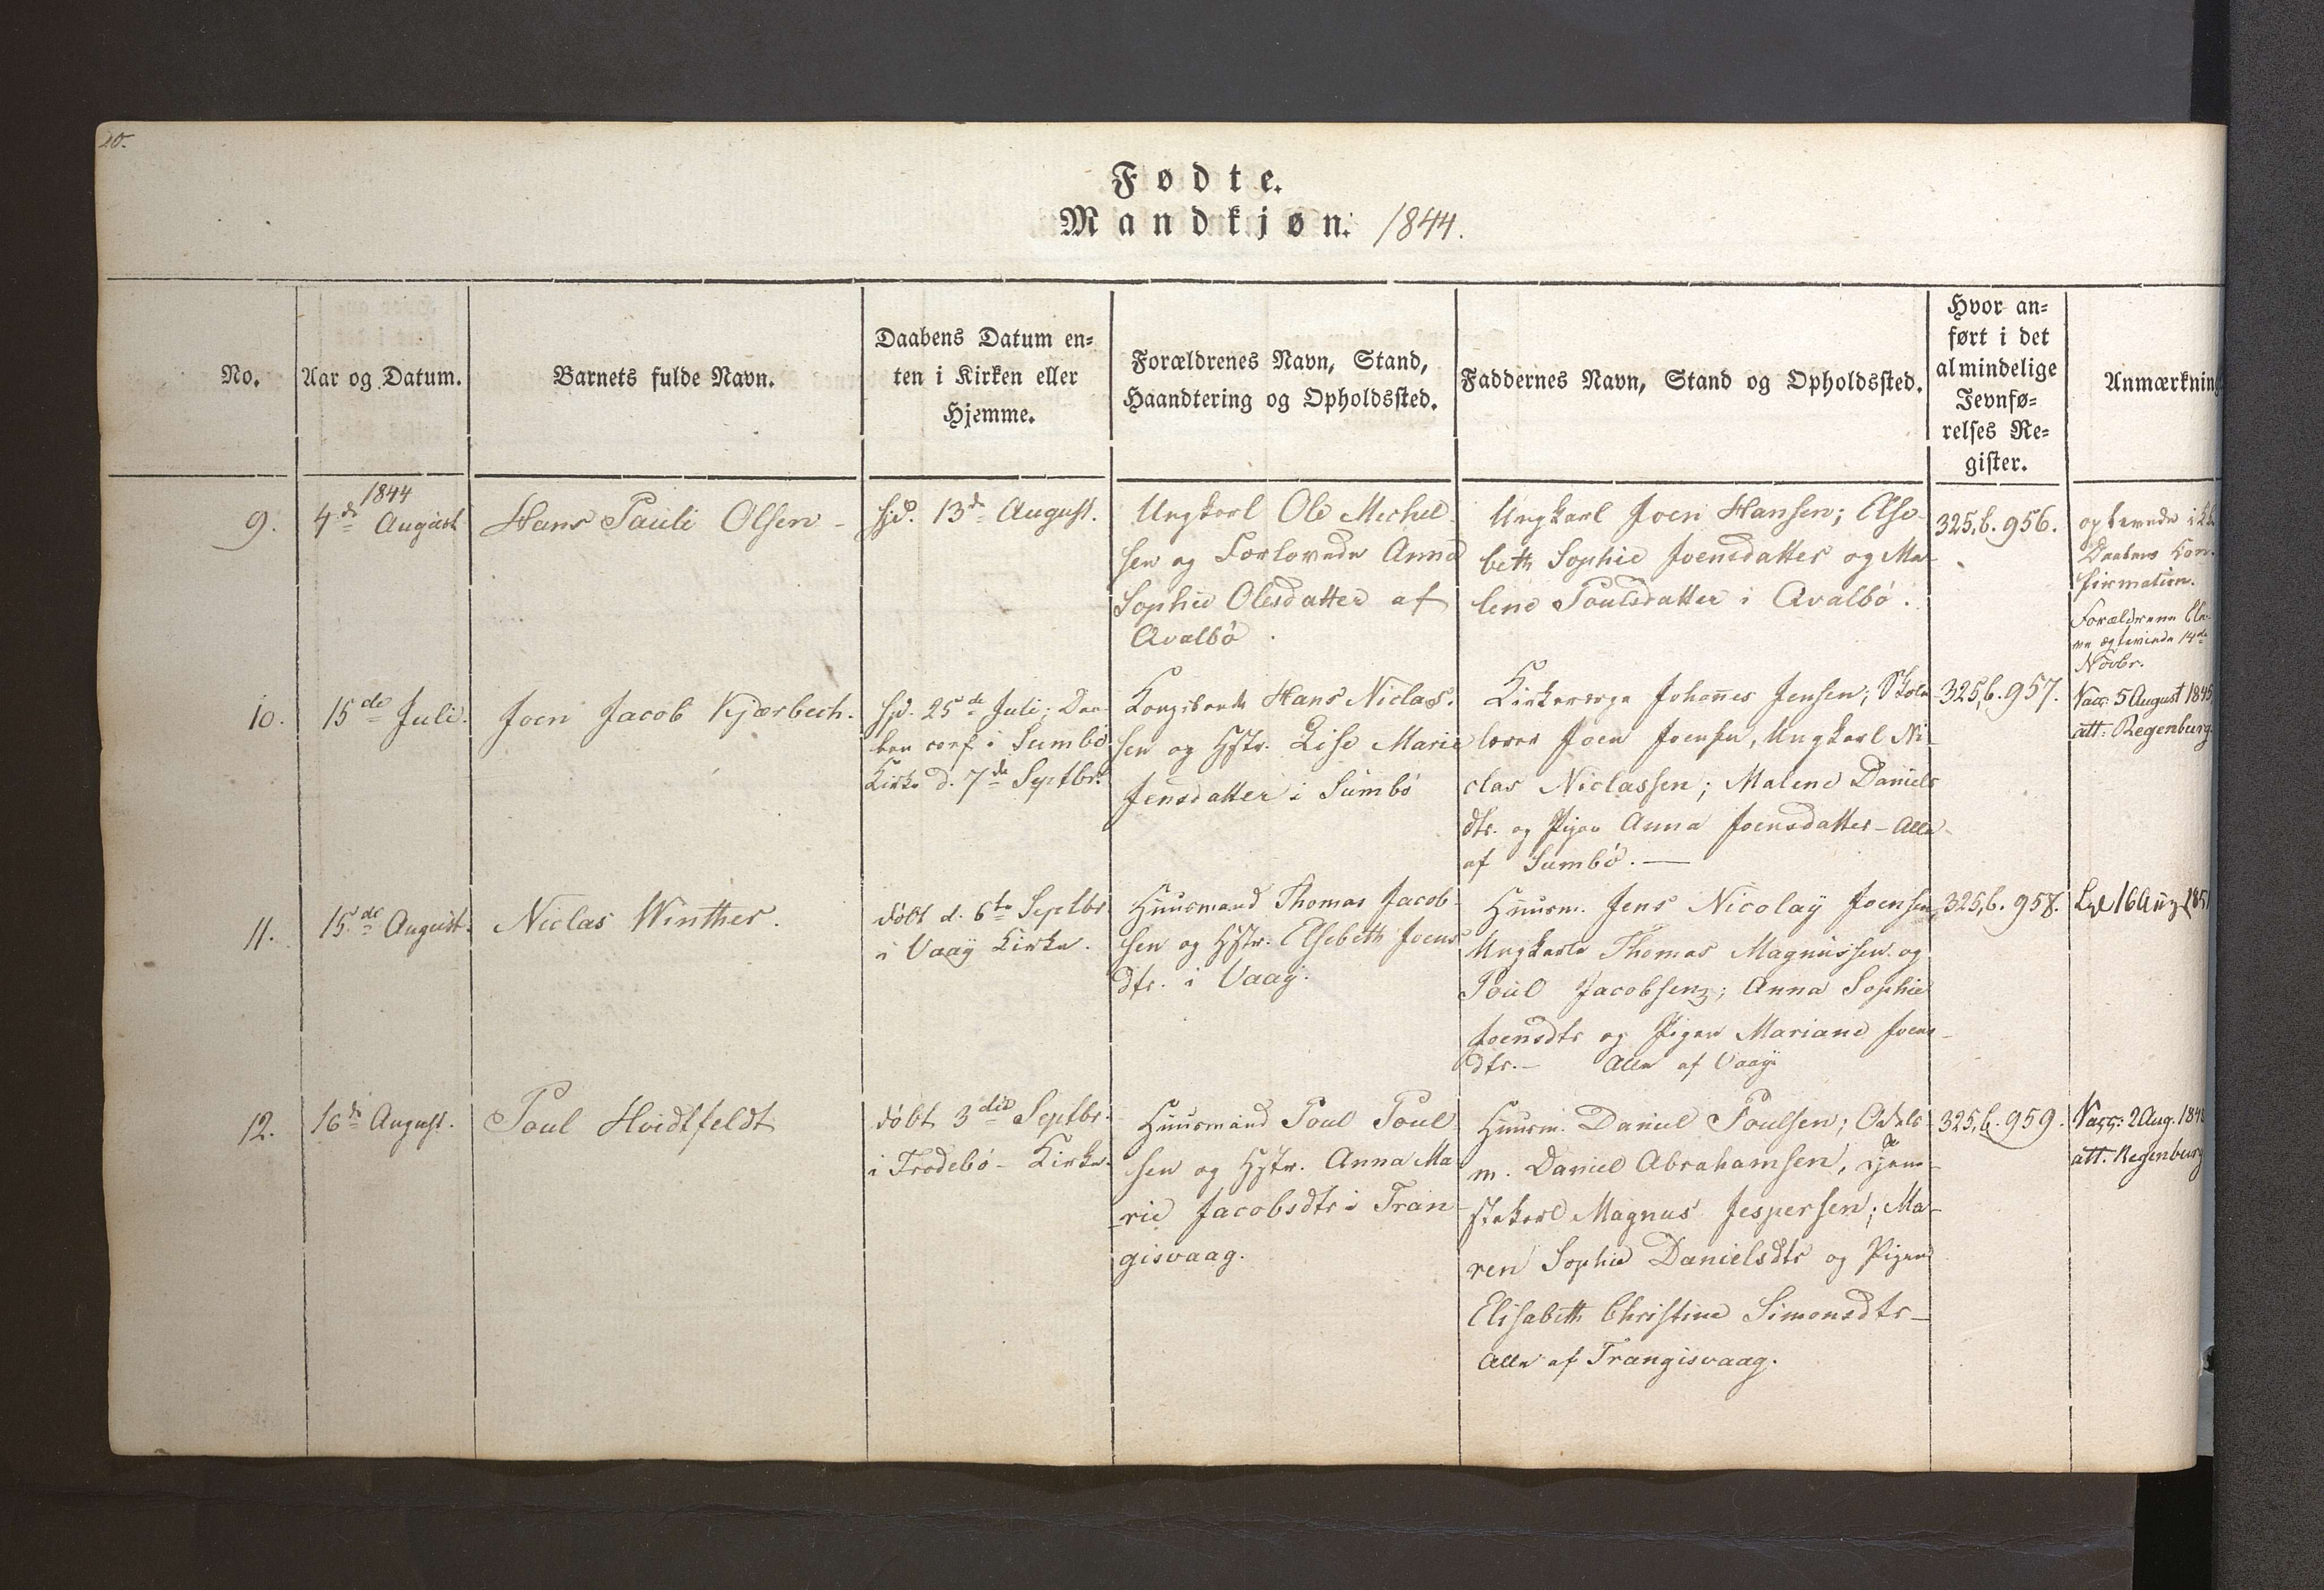 20.
Fødte.
Mandkjøn. 1844.
No.
Aar og Datum.
Barnets fulde Navn.
Daabens Datum en=
ten i Kirken eller
Hjemme.
Forældrenes Navn, Stand,
Haandtering og Opholdssted.
Faddernes Navn, Stand og Opholdssted.
Hvor an=
ført i det
almindelige
Jevnfø=
relses Re=
gister.
Anmærkning
9.
1844
4de August
Hans Pauli Olsen -
Hjd. 13de August.
Ungkarl Ole Michel-
sen og Forlovede Anna
Sophie Olesdatter af
Qvalbø.
Ungkarl Joen Hansen; Else-
beth Sophie Joensdatter og Ma-
lene Poulsdatter i Qvalbø.
325,b. 956.
Daabens Con-
firmation.
Forældrene ble-
ve ægteviede 14de
Novbr.
10.
15de Juli.
Joen Jacob Kjærbech.
Hjd. 25de Juli; Daa-
ben conf. i Sumbø
Kirke d. 7de Septbr.
Kongsbonde Hans Niclas-
sen og Hstr. Lise Marie
Jensdatter i Sumbø
Kirkeverge Johannes Jensen; Skole-
lærer Joen Joensen, Ungkarl Ni-
clas Niclassen; Malene Daniels
dtr. og Pigen Anna Joensdatter - Alle
af Sumbø. —
325,b. 957.
Vacc. 5 August 1845
att: Regenburg
11.
15de August.
Niclas Winther.
døbt d. 6te Septbr
i Vaaÿ Kirke.
Huusmand Thomas Jacob-
sen og Hstr. Elsebeth Joens
dtr. i Vaaÿ.
Huusm. Jens Nicolaÿ Joensen,
Ungkarle Thomas Magnussen og
Poul Jacobsen; Anna Sophie
Joensdtr og Pigen Mariane Joens-
dtr. — Alle af Vaaÿ
325,b. 958.
16 Aug 1851
12.
16de August.
Poul Hvidtfeldt
døbt 3die Septbr.
i Frodebø - Kirke.
Huusmand Poul Poul-
sen og Hstr. Anna Ma-
rie Jacobsdtr i Tran-
gisvaag.
Huusm. Daniel Poulsen; Odels-
m. Daniel Abrahamsen, Tjene-
stekarl Magnus Jespersen; Ma-
ren Sophie Danielsdtr og Pigen
Elisabeth Christine Simonsdtr -
Alle af Trangisvaag.
325,b. 959.
Vacc: 2 Aug. 184
att: Regenburg